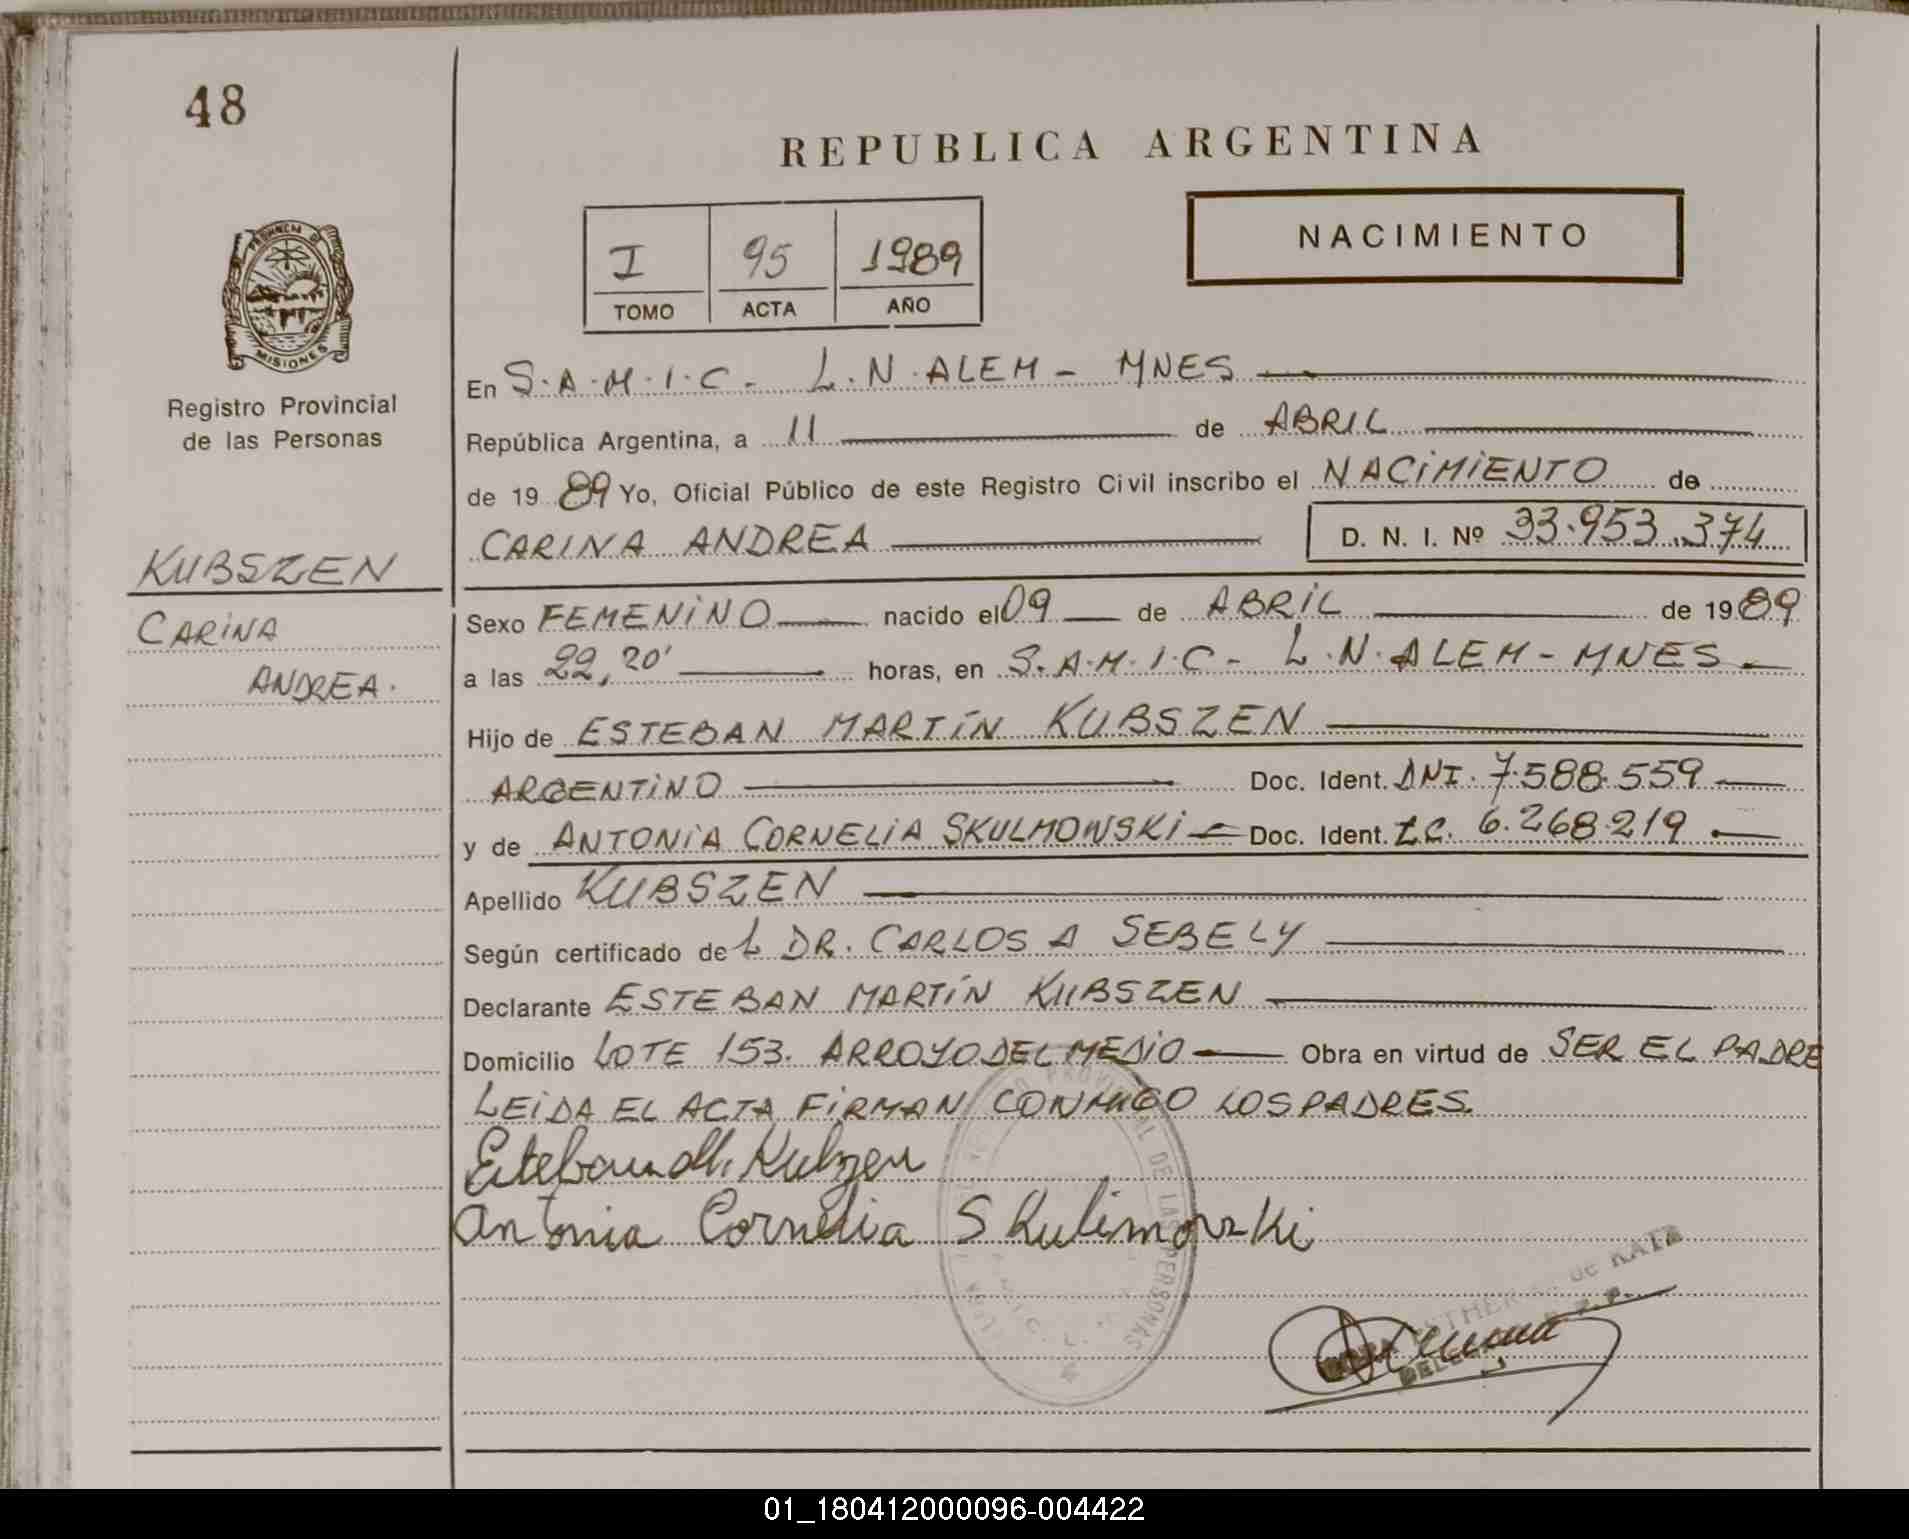 48
REPUBLICA ARGENTINA
I 95 1989
TOMO ACTA AÑO
NACIMIENTO
PROVINCIA DE
MISIONES
Registro Provincial
de las Personas
KUBSZEN
CARINA
ANDREA.
En S.A.M.I.C- L.N.ALEM - MNES
República Argentina, a 11 de ABRIL
de 19 89 Yo, Oficial Público de este Registro Civil inscribo el NACIMIENTO de
CARINA ANDREA D. N. I. Nº 33.953.374
Sexo FEMENINO nacido el 09 de ABRIL de 19 89
a las 22,20' horas, en S.A.M.I.C- L.N.ALEM - MNES
Hijo de ESTEBAN MARTÍN KUBSZEN
ARGENTINO Doc. Ident. DNI. 7.588.559
y de ANTONIA CORNELIA SKULMOWSKI Doc. Ident. L.C. 6.268.219
Apellido KUBSZEN
Según certificado de L DR. CARLOS A SEBELY
Declarante ESTEBAN MARTÍN KUBSZEN
Domicilio LOTE 153. ARROYO DEL MEDIO Obra en virtud de SER EL PADRE
LEIDA EL ACTA FIRMAN CONMIGO LOS PADRES.
Esteban M. Kubzen
Antonia Cornelia Skulimovski
PROVINCIAL DE LAS PERSONAS
de KATZ
01_180412000096-004422